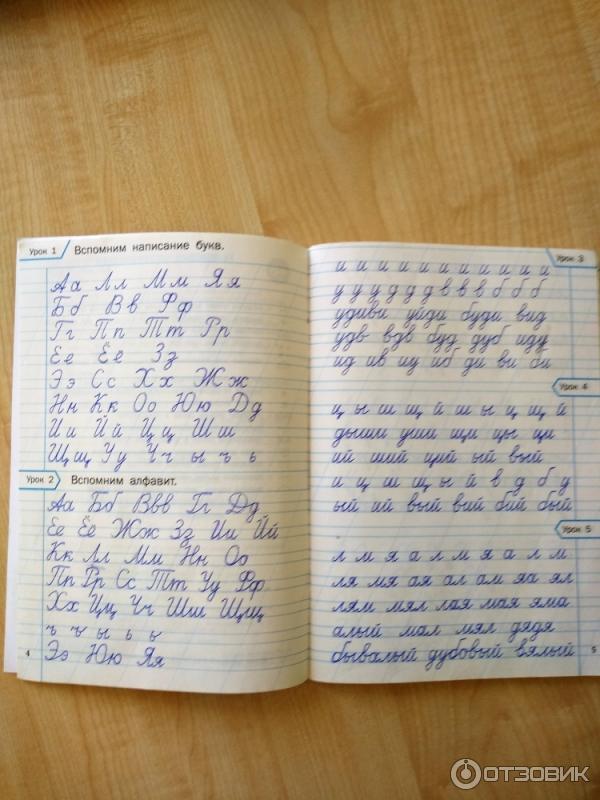 Урок 1 Вспомним написание букв.
Аа Лл Мм Яя
Бб Вв Фф
Гг Пп Тт Рр
Ее Ёё Зз
Ээ Сс Хх Жж
Нн Кк Оо Юю Дд
Ии Йй Цц Шш
Щщ Уу Чч ы ъ ь
Урок 2 Вспомним алфавит.
Аа Бб Ввв Гг Дд
Ее Ёё Жж Зз Ии Йй
Кк Лл Мм Нн Оо
Пп Рр Сс Тт Уу Фф
Хх Цц Чч Шш Щщ
ъ ъ ы ь ь
Ээ Юю Яя
4
Урок 3
и и и и и и и и и и и
у у у д д д в в в б б б
удиви уйди буди вид
удв вдв буд дуб иду
ид ив иу иб ди ви би
Урок 4
ц ы ш щ й ш ы ц щ й
дыши уши щи цы ци
ий ший ций ый вый
и ц ш щ ы й в д б у
ый ий вый вий бий бый
Урок 5
л м я а л м я а л м
ля мя ая ал ам яа ял
лям мял лая мая яма
алый мал мял дядя
бывалый дубовый вялый
5
ОТЗОВИК